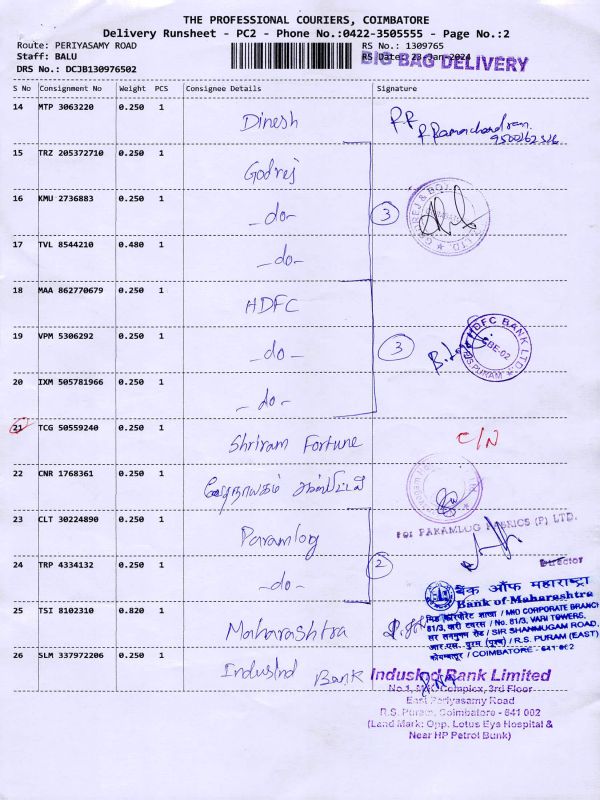 THE PROFESSIONAL COURIERS, COIMBATORE
Delivery Runsheet - PC2 - Phone No.:0422-3505555 - Page No.:2
Route: PERIYASAMY ROAD
RS No.: 1309765
Staff: BALU
RS Date: 23-Jan-2024
BIG BAG DELIVERY
DRS No.: DCJB130976502
S No Consignment No Weight PCS Consignee Details Signature
14 MTP 3063220 0.250 1 Dinesh
R.R
R Ramachandran
15 TRZ 205372710 0.250 1 Godrej
16 KMU 2736883 0.250 1 -do- 3
17 TVL 8544210 0.480 1 -do-
18 MAA 862770679 0.250 1 HDFC
19 VPM 5306292 0.250 1 -do- 3
HDFC BANK LTD.
20 IXM 505781966 0.250 1 -do-
21 TCG 50559240 0.250 1 Shriram Fortune C/N
22 CNR 1768361 0.250 1
23 CLT 30224890 0.250 1 Paramlog
For PARAMLOG FABRICS (P) LTD.
24 TRP 4334132 0.250 1 -do- 2
Director
बैंक ऑफ महाराष्ट्र
Bank of Maharashtra
25 TSI 8102310 0.820 1 Maharashtra
मिड कॉरपोरेट शाखा / MID CORPORATE BRANCH
81/3, वारी टवरस / No. 81/3, VARI TOWERS,
सर शनमुगम रोड / SIR SHANMUGAM ROAD,
आर.एस. पुरम (पूरब) / R.S. PURAM (EAST)
कोयम्बतूर / COIMBATORE - 641 002
26 SLM 337972206 0.250 1 IndusInd Bank
IndusInd Bank Limited
No.1, Complex, 3rd Floor
East Periyasamy Road
R.S. Puram, Coimbatore - 641 002
(Land Mark: Opp. Lotus Eye Hospital &
Near HP Petrol Bunk)